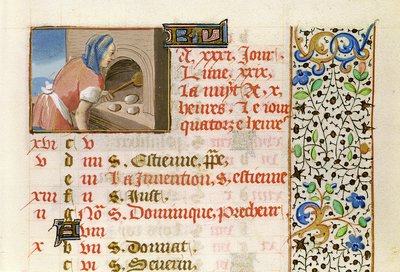 A xxxi Jour
Lune xxix
la nuyt A x
heures Le iour
quatorze heures
xvi c v
v d iiii S. Estienne, ppe.
e iii La Invention, s. estienne
xiii f n S. Just
n g N S. Dominique, precheur
A viii
x b vii S. Donnat
c vi S. Severin